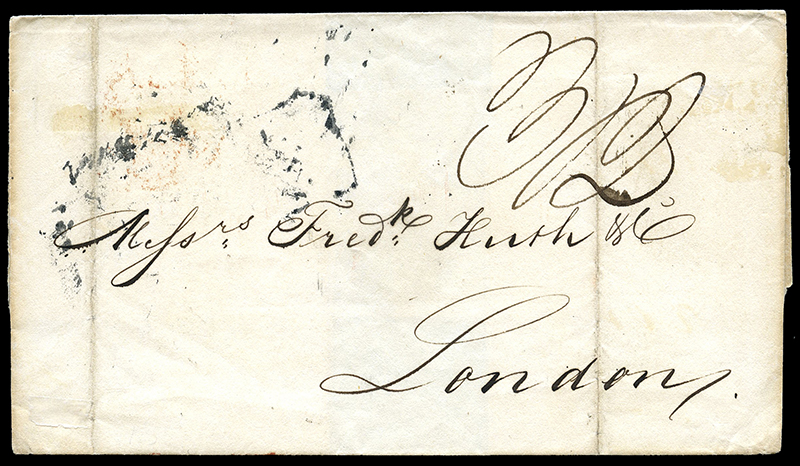 Messrs. Fredk. Huth & Co
London,.